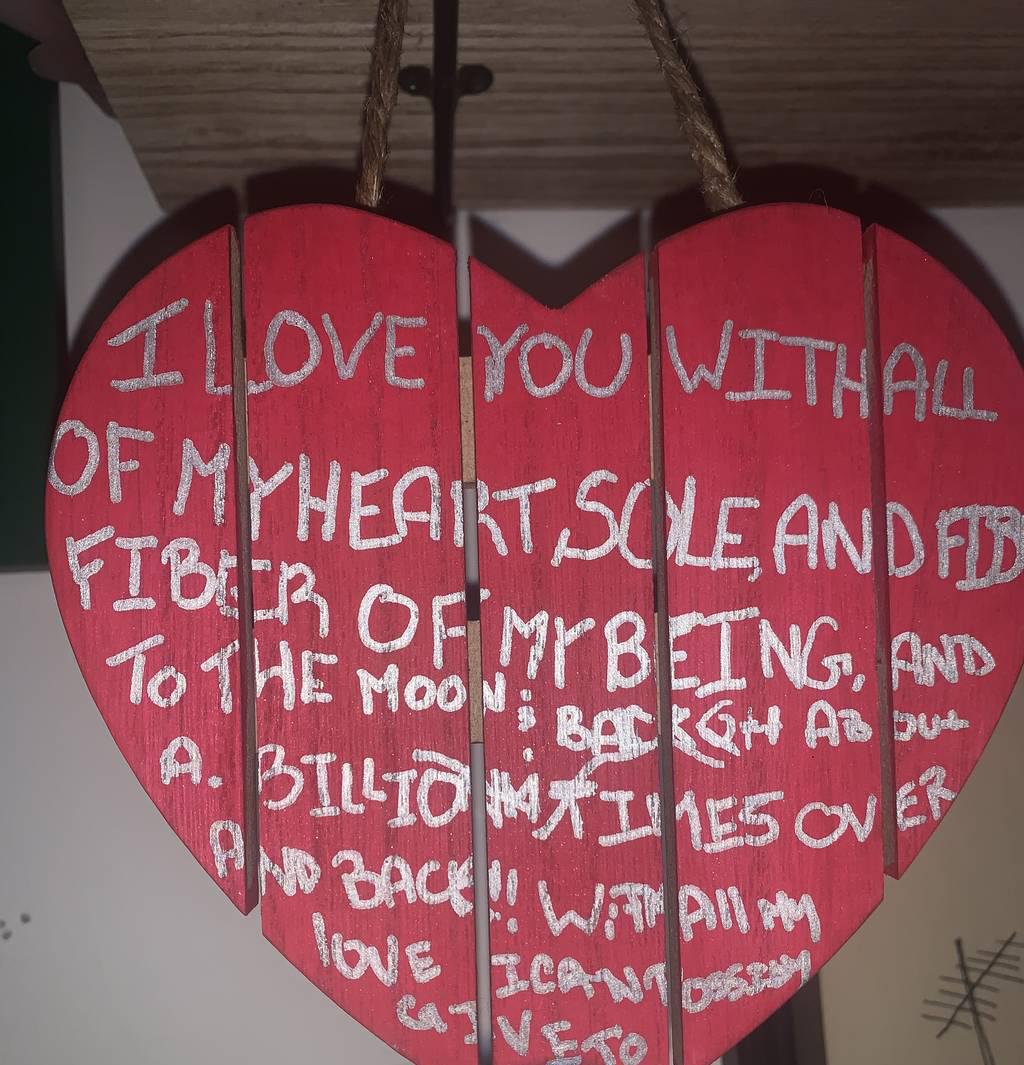 I LOVE YOU WITH ALL
OF MY HEART SOLE, AND FIB
FIBER OF MY BEING, AND
TO THE MOON BACK ABOUT
A. BILLION TIMES OVER
AND BACK!! WITH All MY
lOVE I CANT
GIVE TO